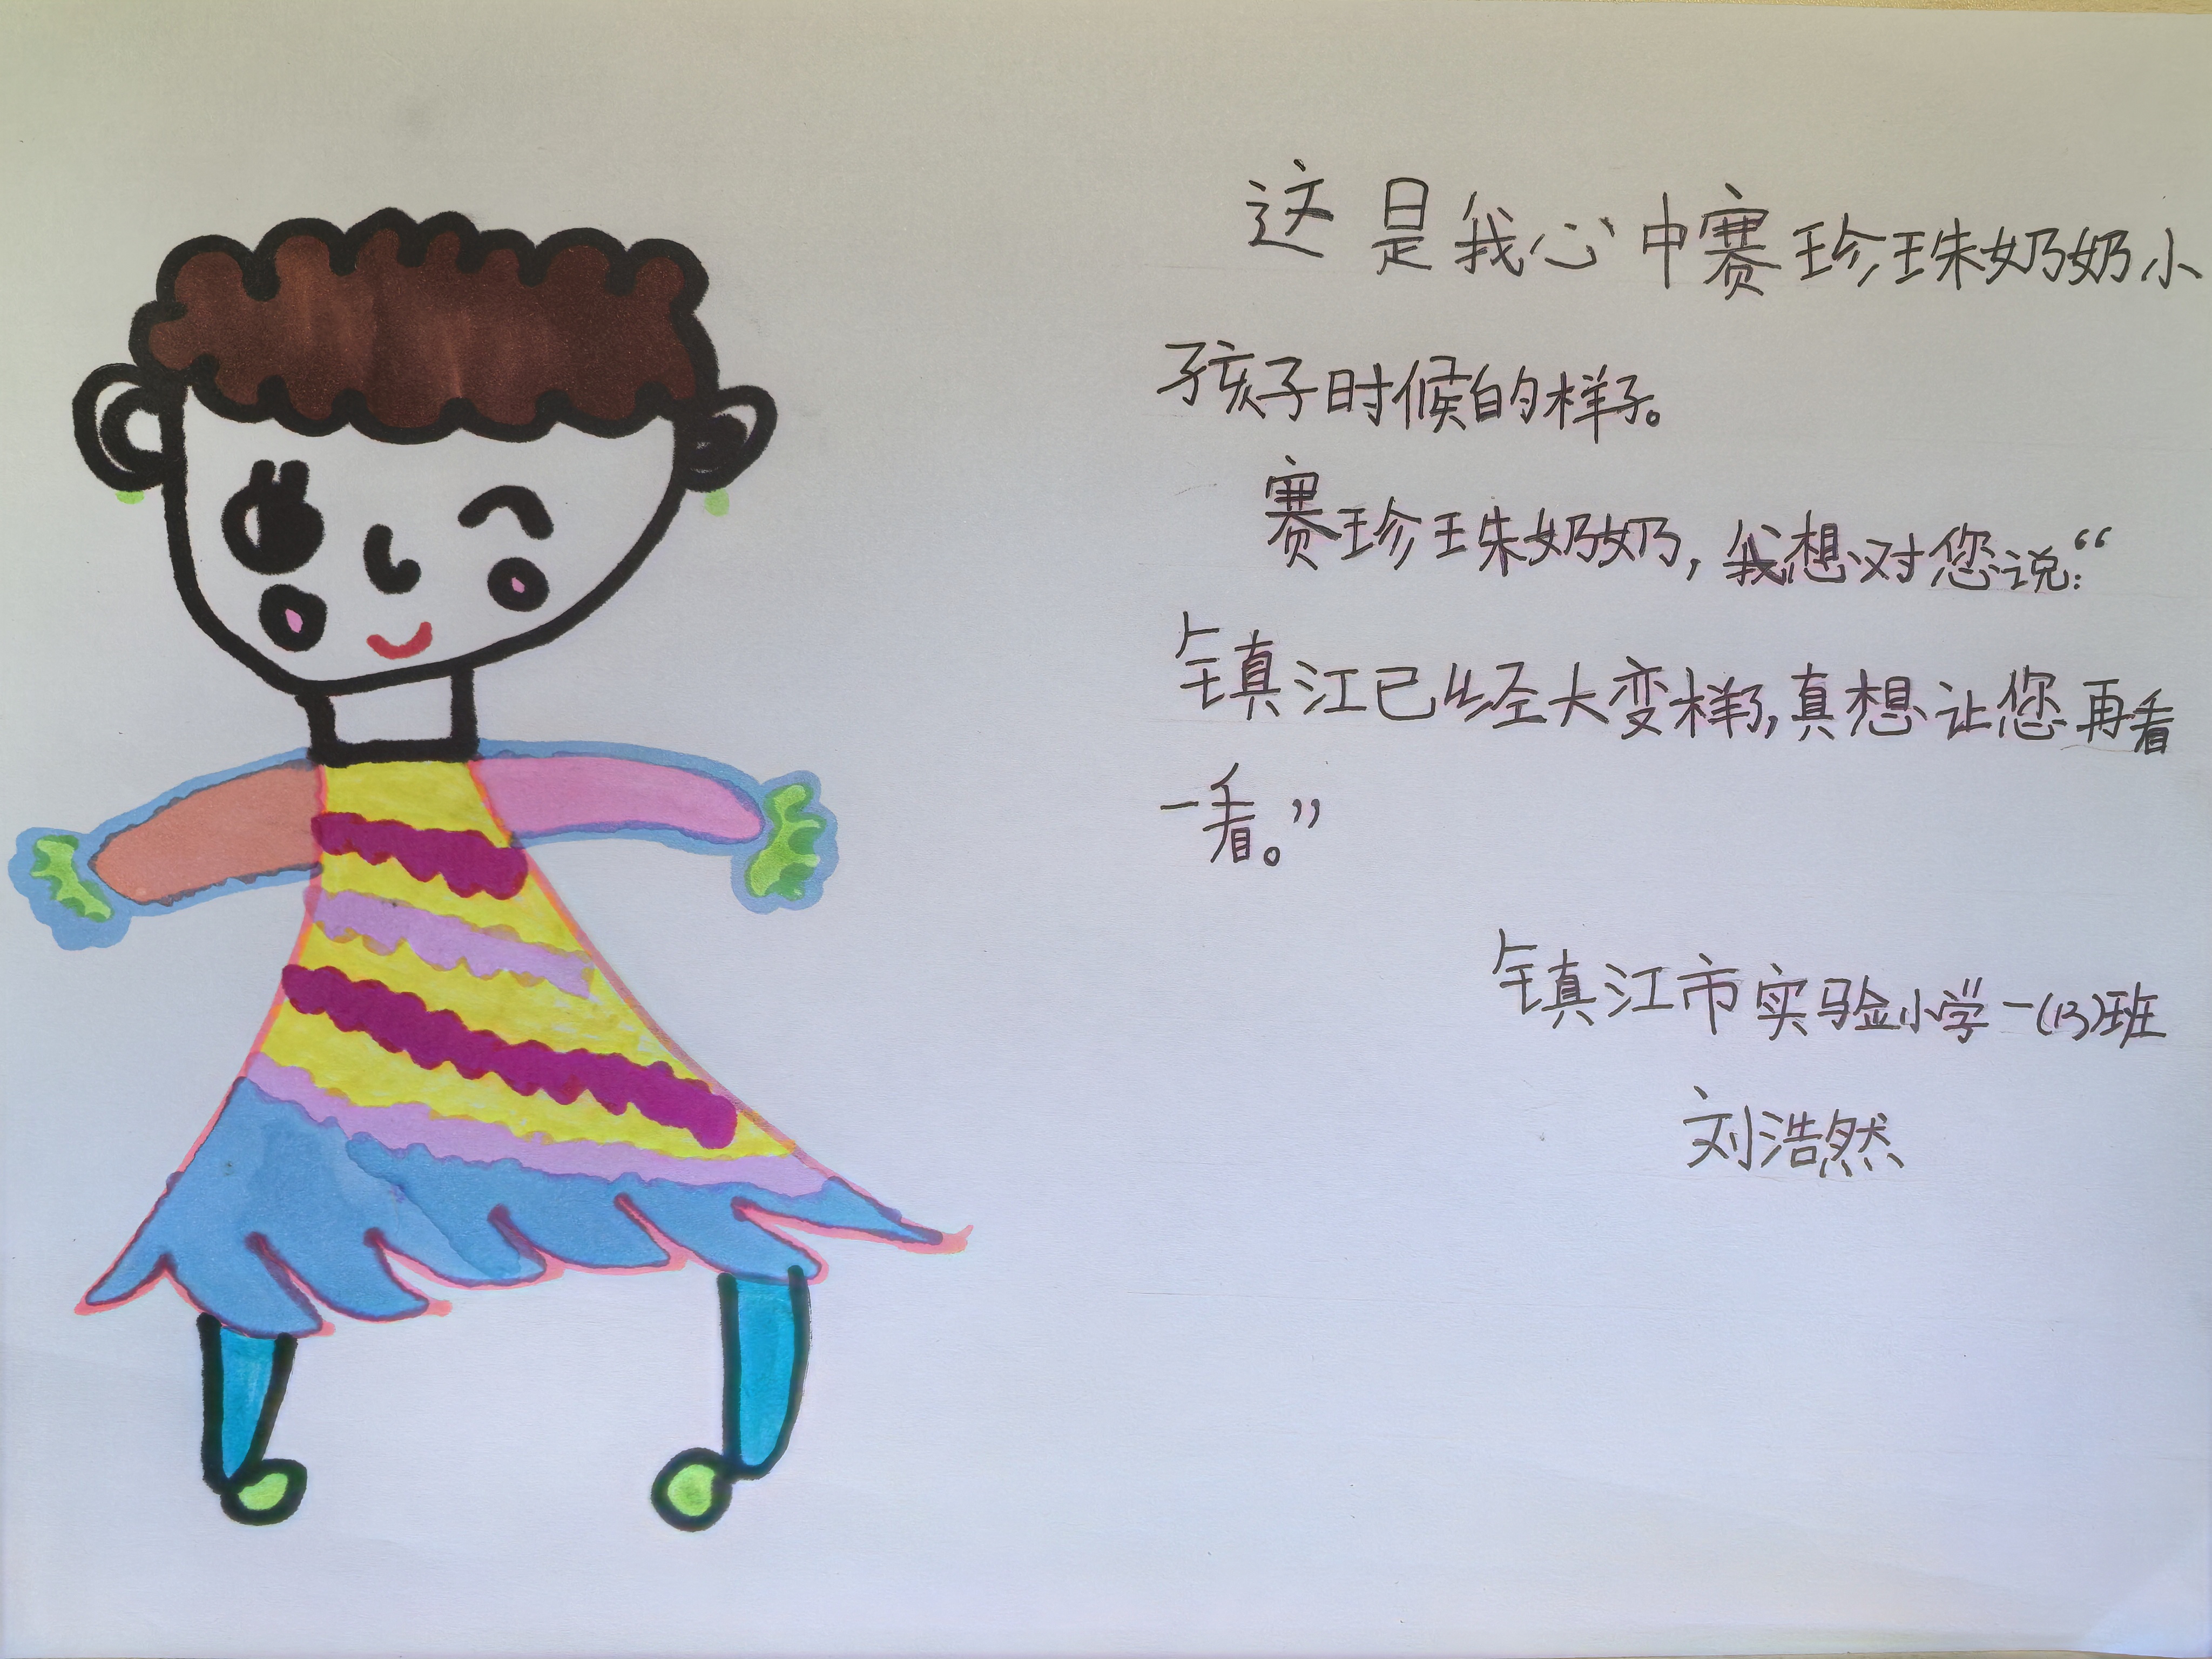 这是我心中赛珍珠奶奶小
孩子时候的样子。
赛珍珠奶奶，我想对您说：“
镇江已经大变样了，真想让您再看
一看。”
镇江市实验小学一(13)班
刘浩然